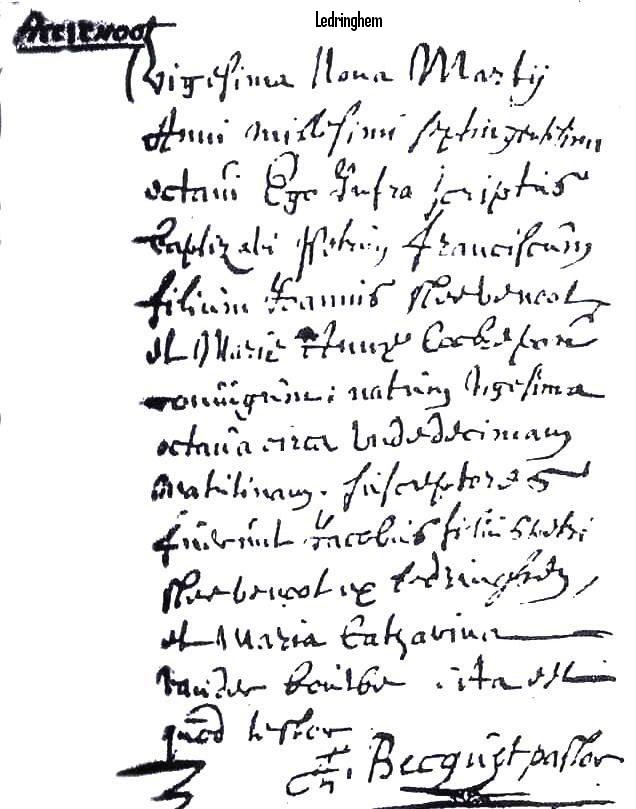 Ledringhem
vigesima nona Martij
Anni millesimi septingentesimi
octavi Ego infra scriptus
baptizavi Petrum franciscum
filium Joannis
et Marie Annæ
coniugum: natum vigesima
octava circa undedecimam
matutinam. susceptores
fuerunt Jacobus filius Petri
ex Ledringhem,
et Maria Catharina
vander ita est
quod testor
Becquet pastor